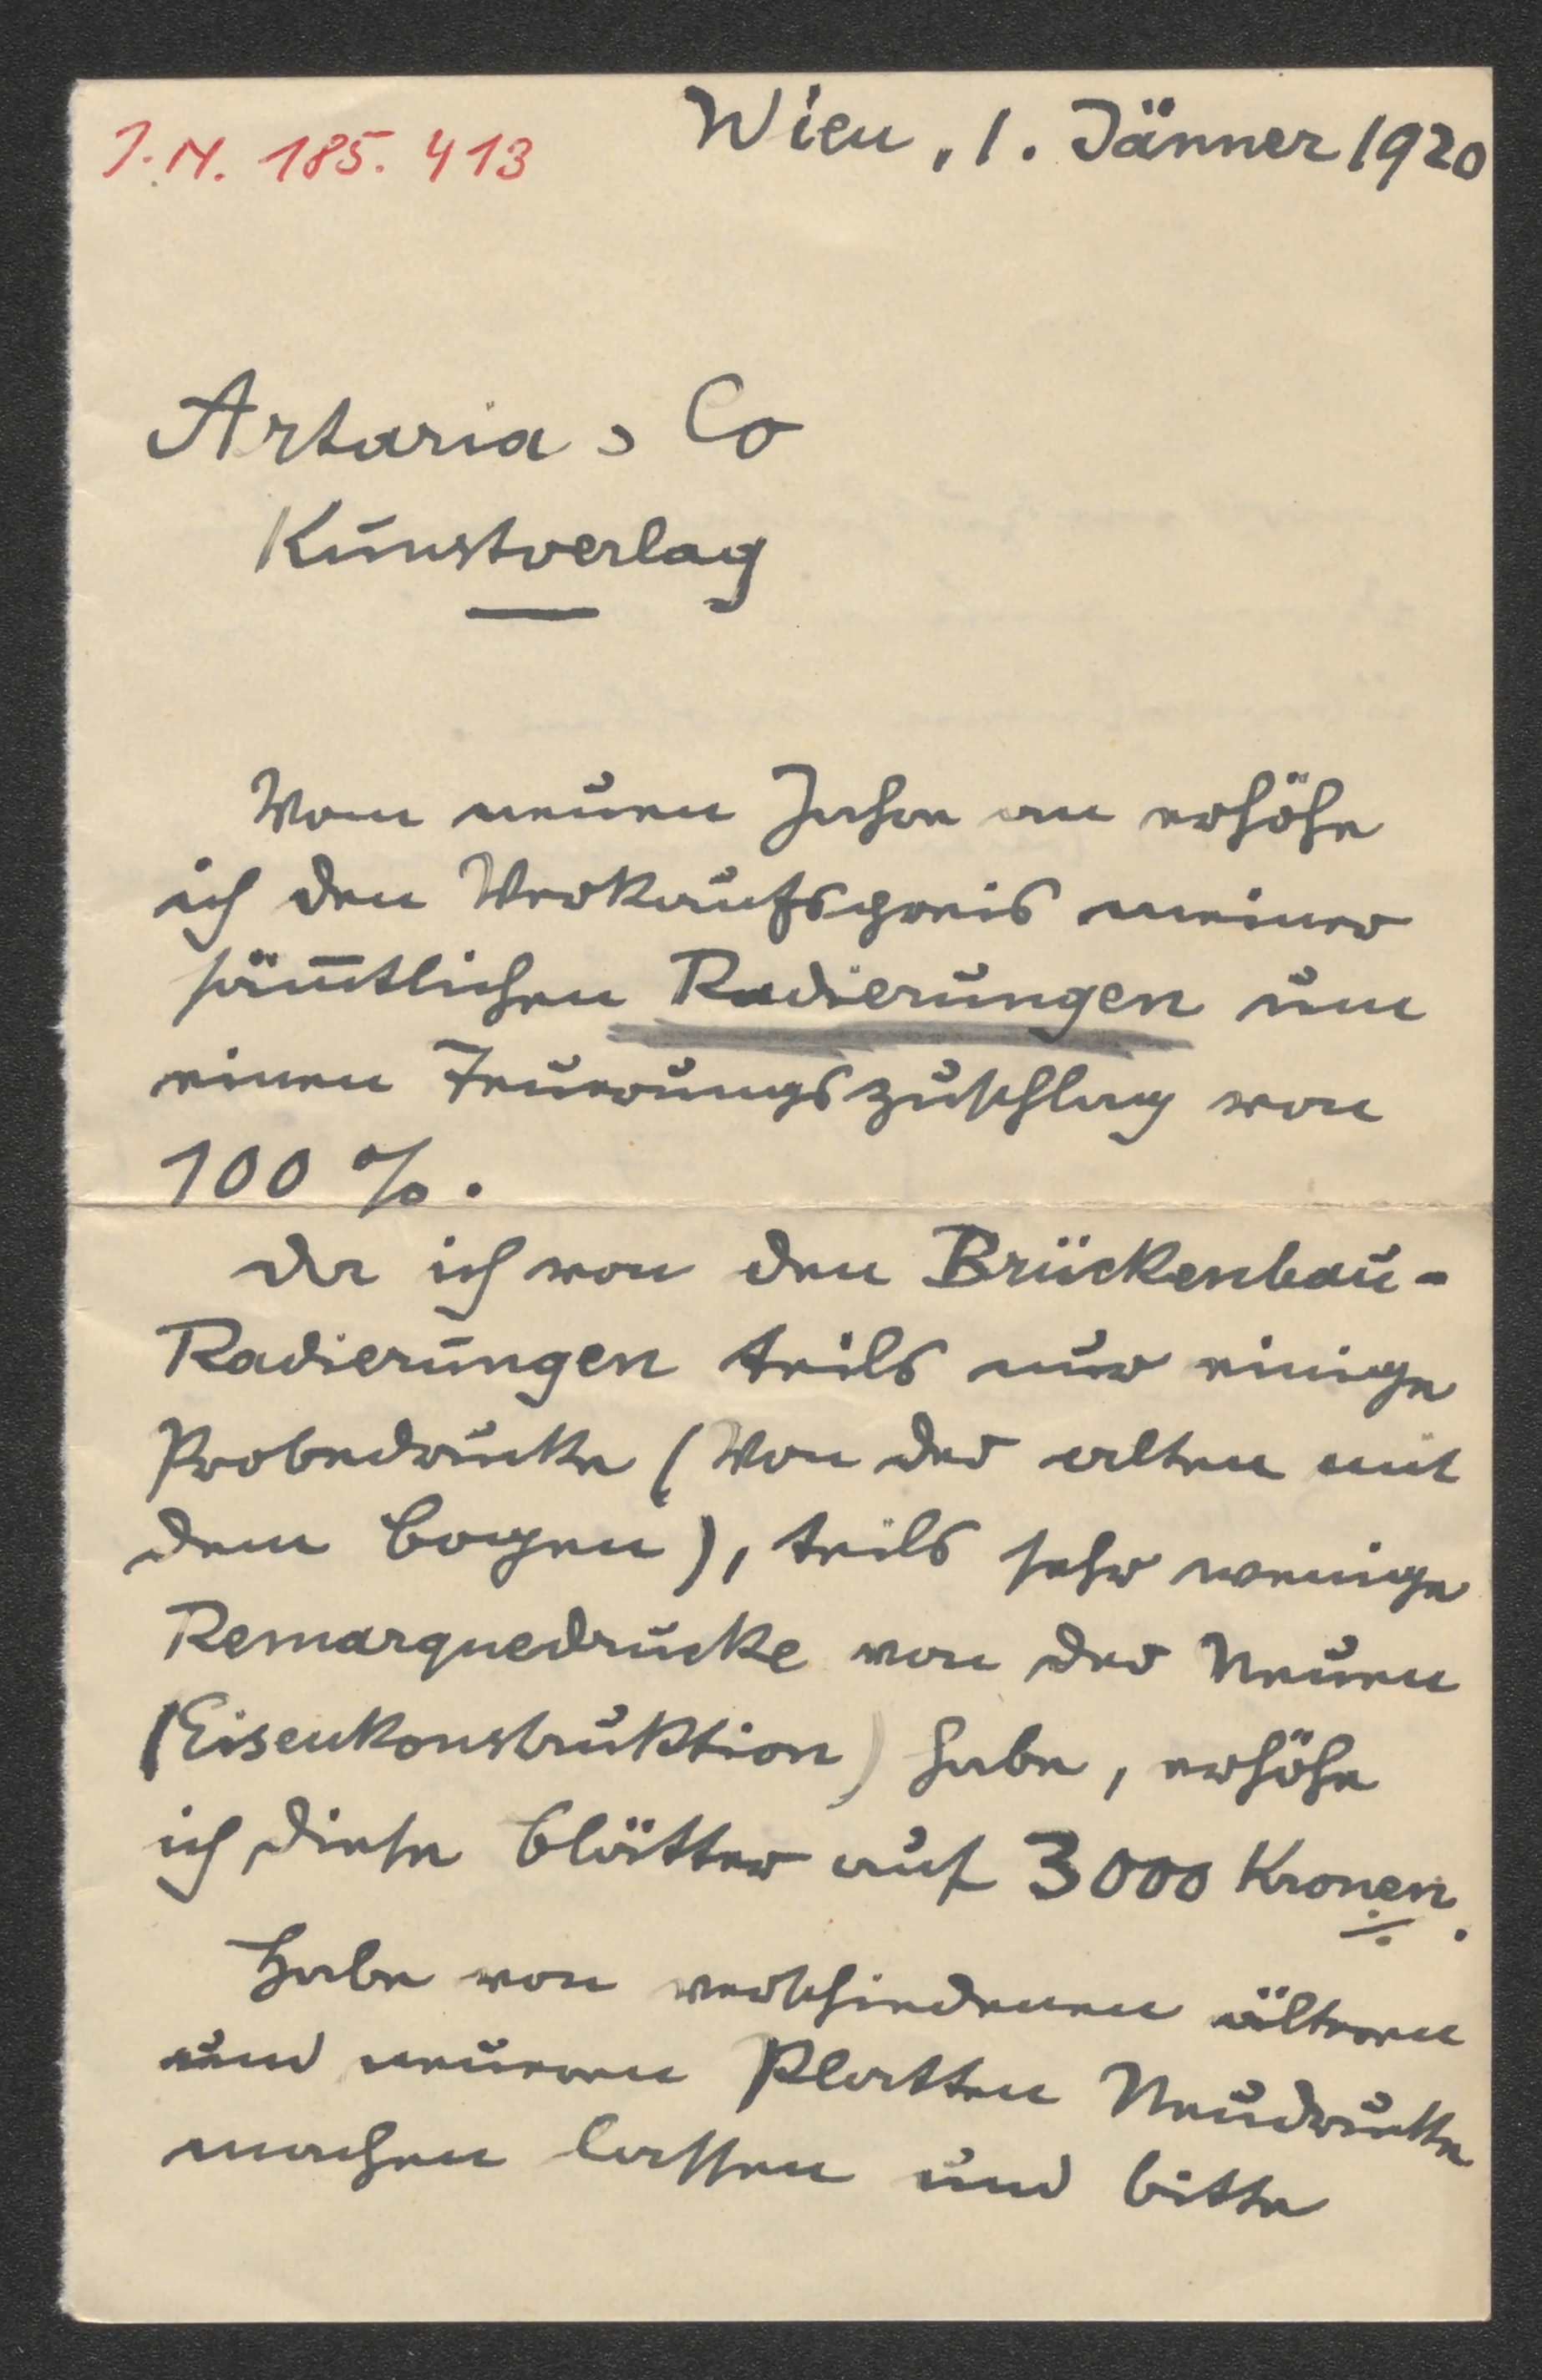 J.N. 185.413
Wien, 1. Jänner 1920
Artaria & Co
Kunstverlag
Vom neuen Jahre an erhöhe
ich den Verkaufspreis meiner
sämtlichen Radierungen um
einen Teuerungszuschlag von
100 %.
Da ich von den Brückenbau-
Radierungen teils nur einige
Probedrucke (Von der alten mit
dem Bogen), teils sehr wenige
Remarquedrucke von der Neuen
(Eisenkonstruktion) habe, erhöhe
ich diese Blätter auf 3000 Kronen.
Habe von verschiedenen älteren
und neueren Platten Neudrucke
machen lassen und bitte